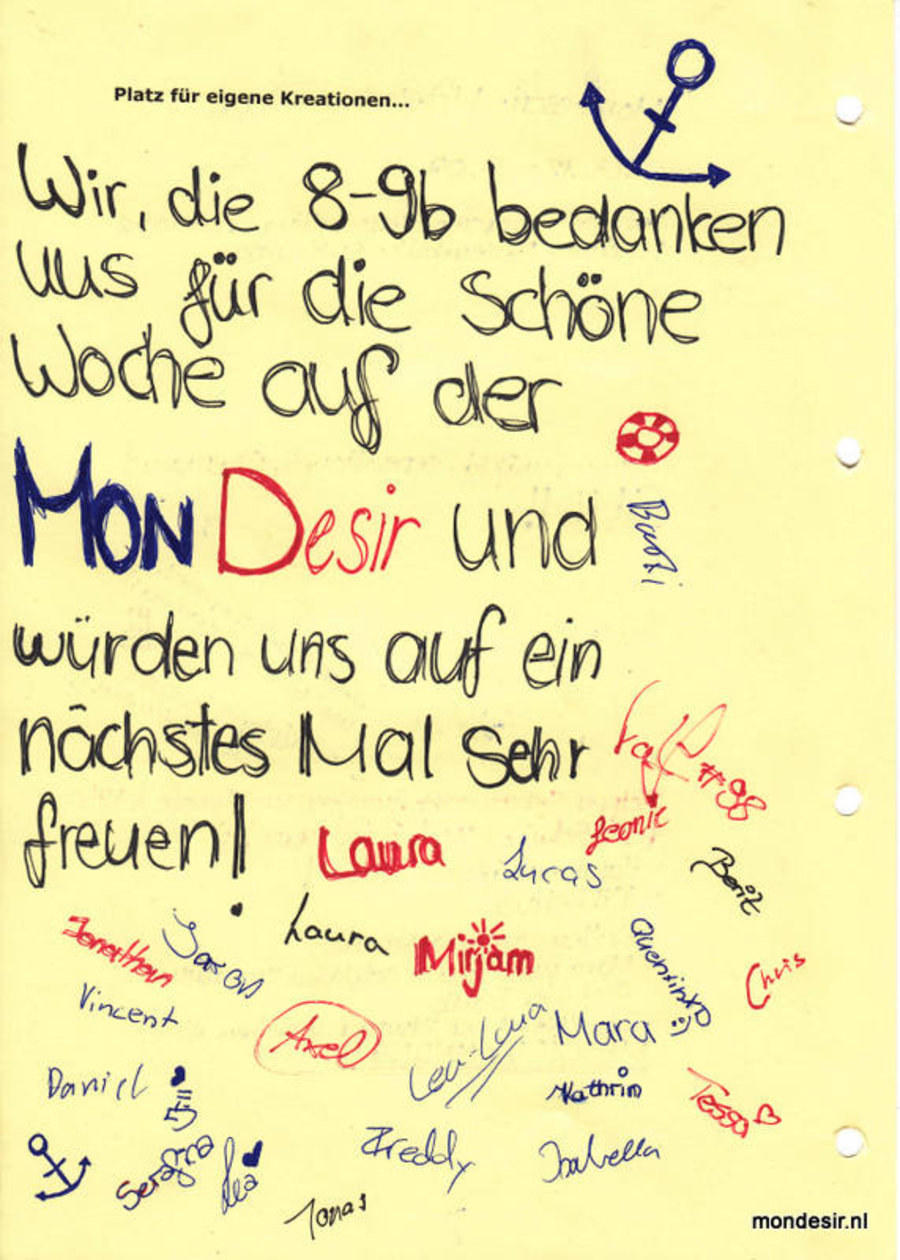 Platz für eigene Kreationen...
Wir, die 8-9b bedanken
uns für die schöne
Woche auf der
MON Desir und
würden uns auf ein
nächstes Mal sehr
freuen!
Basti
Ralf #98
Leonie
Laura
Lucas
Berit
Jonathan
Jaron
Laura
Mirjam
Quentin XD :)
Chris
Vincent
Axel
Lea-Luna
Mara
Daniel
Kathrin
Tessa
Serafina
Lea
Freddy
Isabella
Jonas
mondesir.nl